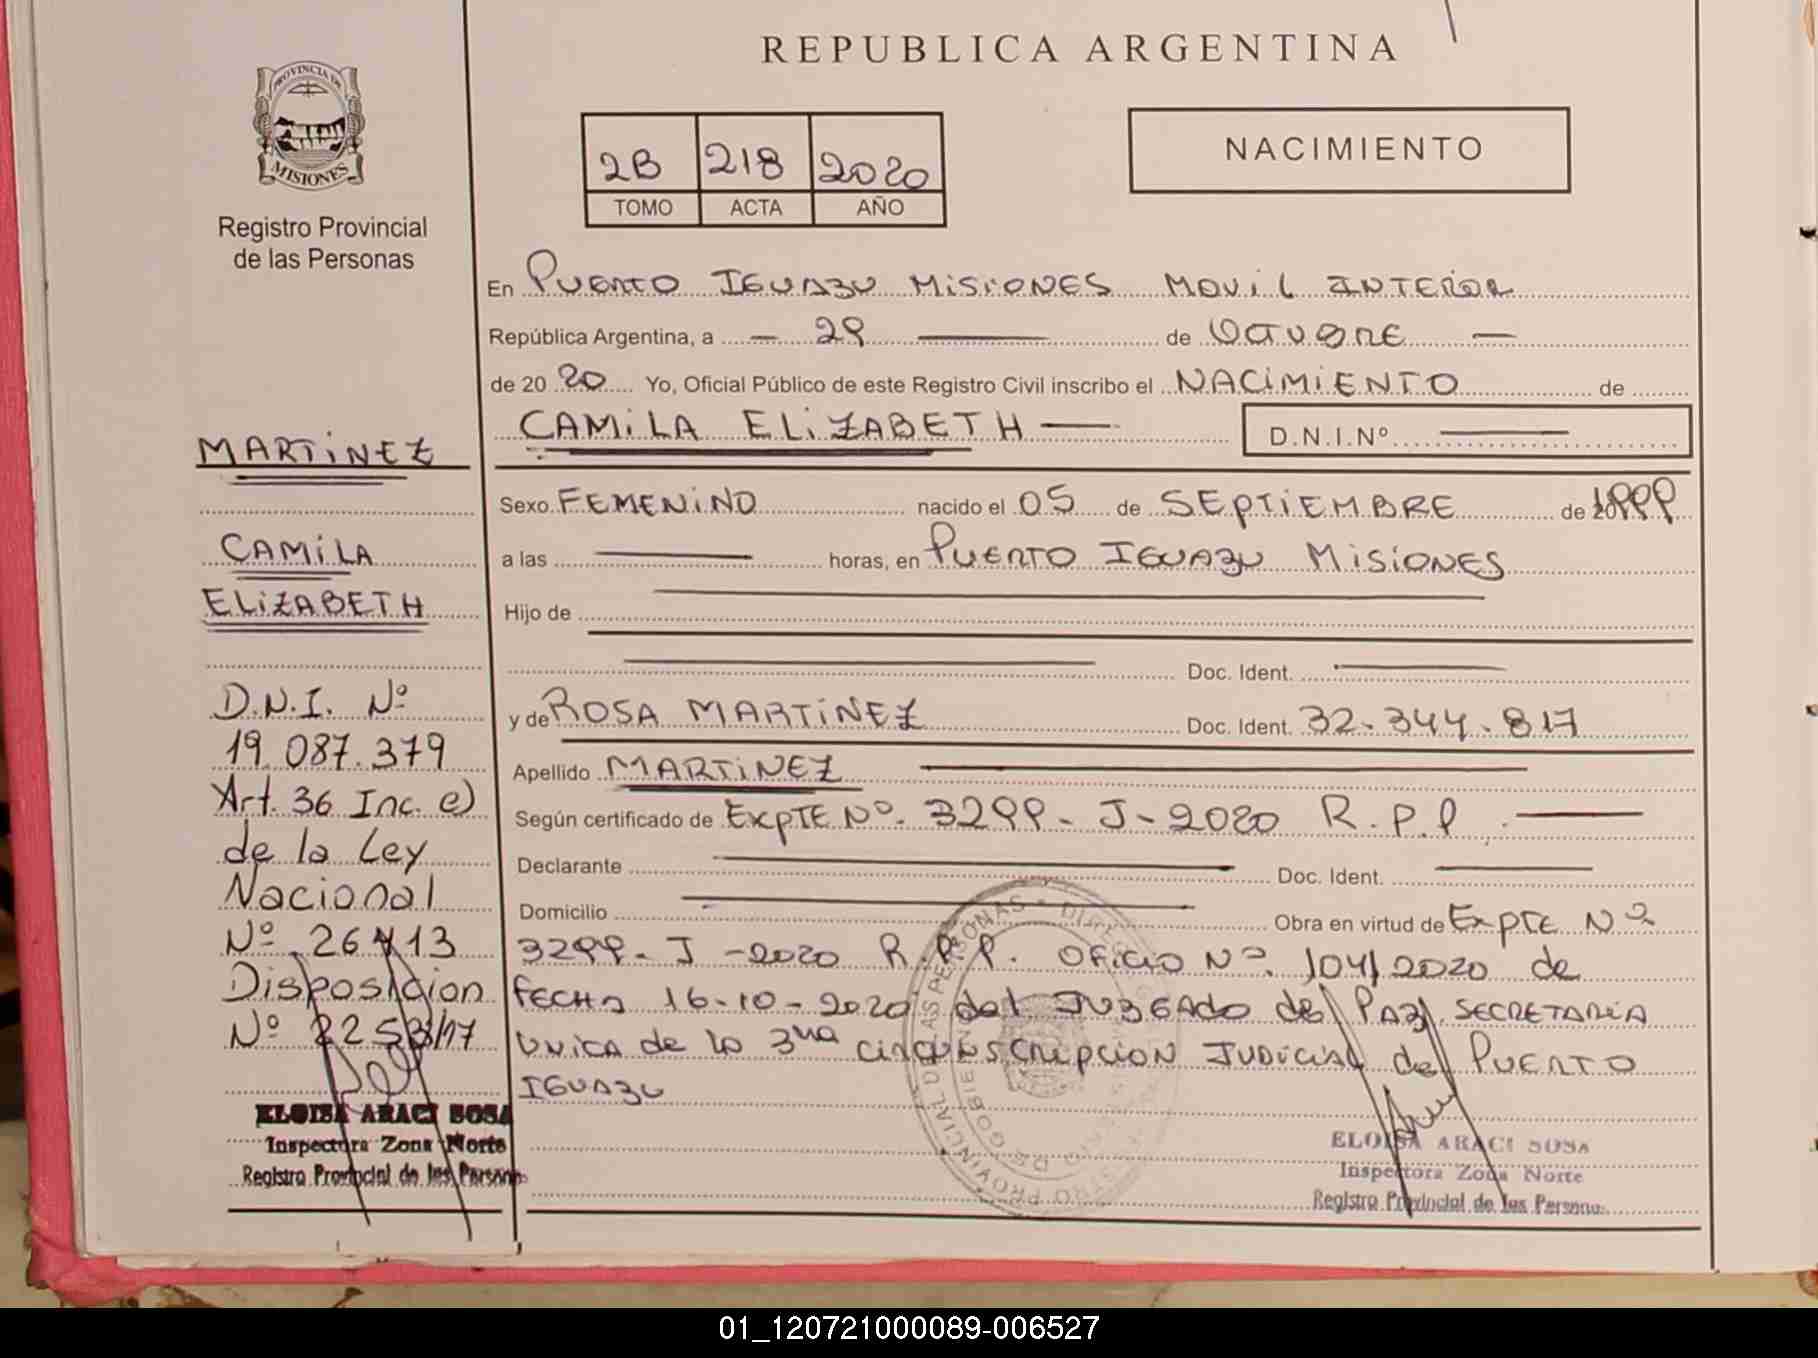 REPUBLICA ARGENTINA
PROVINCIA DE
MISIONES
Registro Provincial
de las Personas
2B 218 2020
TOMO ACTA AÑO
NACIMIENTO
En PUERTO IGUAZU MISIONES MOVIL INTERIOR
República Argentina, a — 29 — de OCTUBRE —
de 20 20 Yo, Oficial Público de este Registro Civil inscribo el NACIMIENTO de
CAMILA ELIZABETH — D.N.I.Nº —
Sexo FEMENINO nacido el 05 de SEPTIEMBRE de 1999
a las — horas, en PUERTO IGUAZU MISIONES
Hijo de —
— Doc. Ident. —
y de ROSA MARTINEZ Doc. Ident. 32.344.817
Apellido MARTINEZ —
Según certificado de EXPTE Nº. 3299-J-2020 R.P.P. —
Declarante — Doc. Ident. —
Domicilio — Obra en virtud de EXPTE Nº
3299-J-2020 R.P.P. OFICIO Nº. 104/2020 de
FECHA 16-10-2020 del JUZGADO de PAZ SECRETARIA
UNICA de la 3ma CIRCUNSCRIPCION JUDICIAL del PUERTO
IGUAZU
ELOISA ARACI SOSA
Inspectora Zona Norte
Registro Provincial de las Personas
MARTINEZ
CAMILA
ELIZABETH
D.N.I. Nº
19.087.379
Art. 36 Inc. e)
de la Ley
Nacional
Nº 26413
Disposicion
Nº 2253/17
ELOISA ARACI SOSA
Inspectora Zona Norte
Registro Provincial de las Personas
01_120721000089-006527